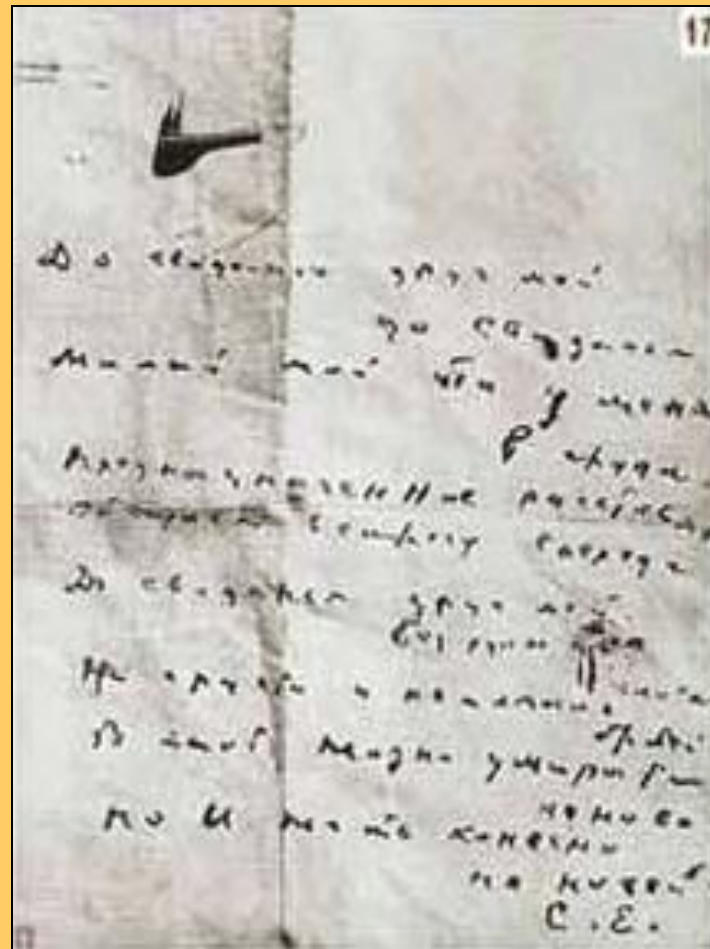 17
До свиданья друг мой
до свиданья
Милый мой ты у меня
в груди.
Предназначенное расставанье
обещает встречу впереди
До свиданья друг мой
без руки и слова
Не грусти и не печаль
бровей
В этой жизни умирать
не ново
но и жить конечно
не новей
С. Е.